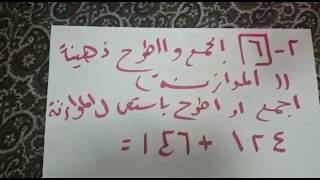 ٢-[٦] الجمع والطرح ذهنيًا
(( الموازنة ))
اجمع او اطرح باستعمال الموازنة
١٢٤ + ١٤٦ =